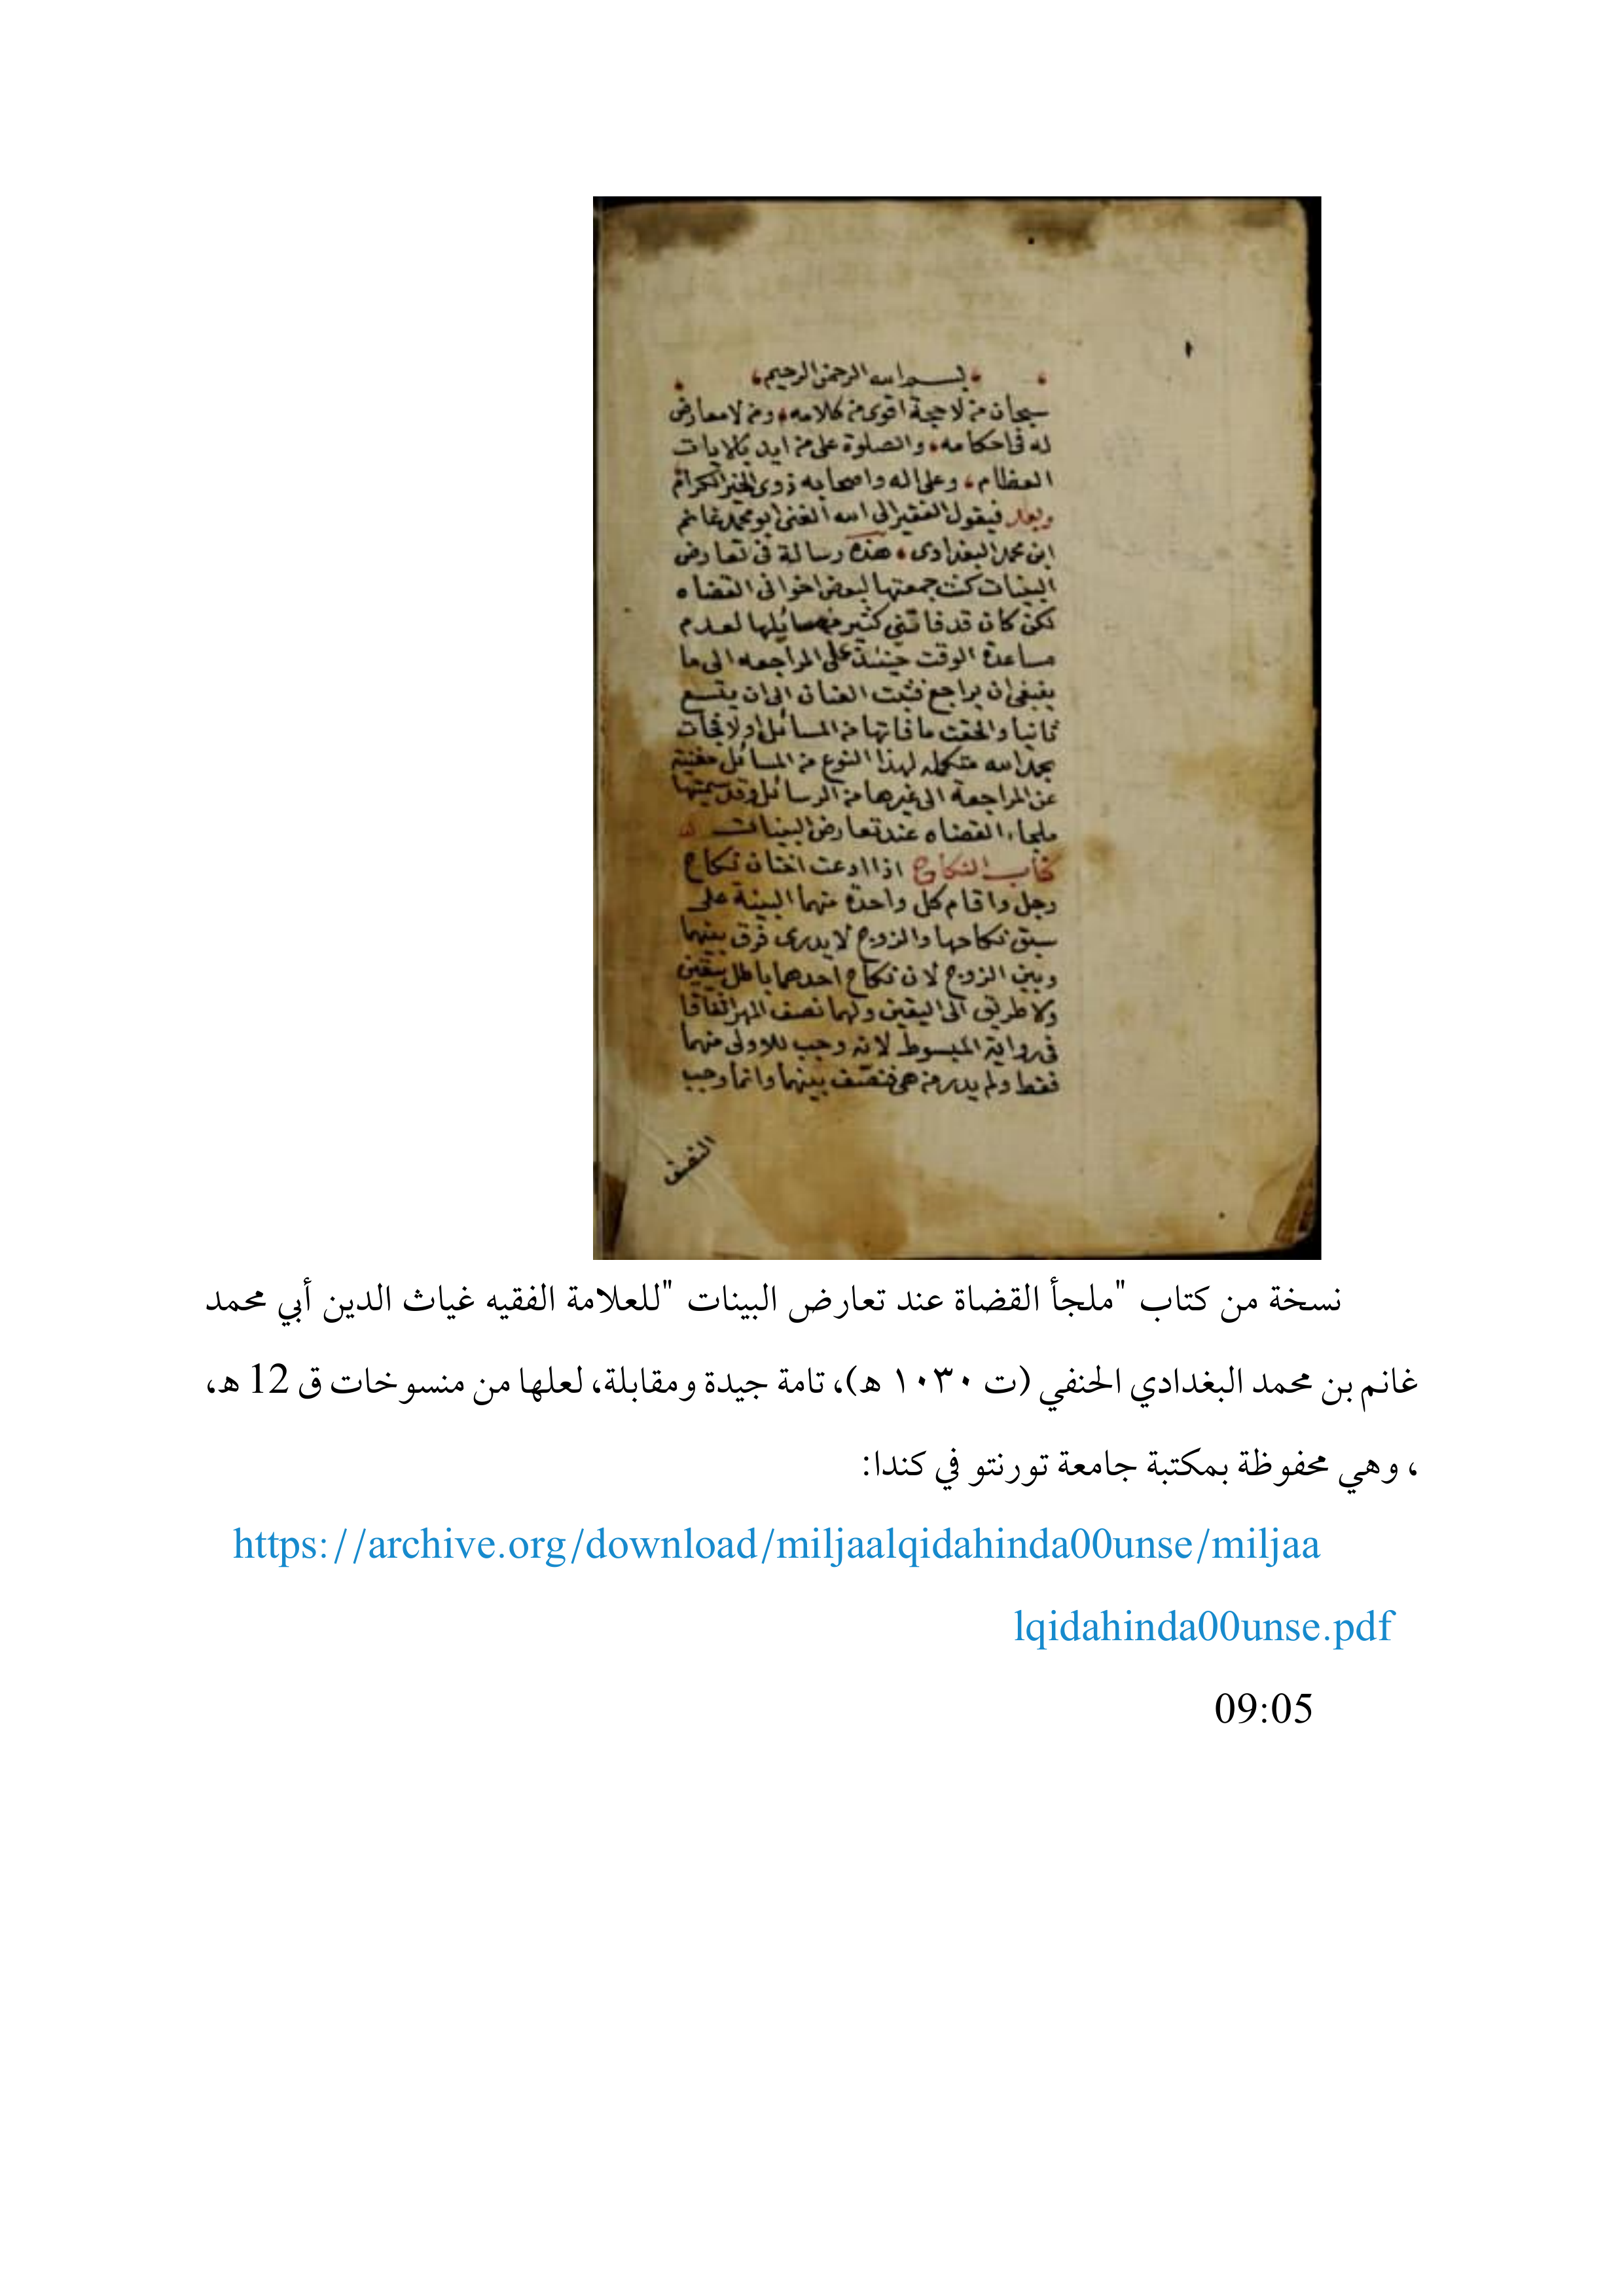 بسم الله الرحمن الرحيم
سبحان من لا حجة اقوى من كلامه ومن لا معارض
له في احكامه والصلوة على من ايد بالايات
العظام وعلى اله واصحابه ذوى الخير الكرام
وبعد فيقول الفقير الى الله الغنى ابو محمد غانم
ابن محمد البغدادى هذه رسالة في تعارض
البينات كنت جمعتها لبعض اخوانى القضاه
لكن كان قد فاتنى كثير من مسايلها لعدم
مساعدة الوقت حينئذ على المراجعه الى ما
ينبغى ان يراجع العنان الى ان يتسع
ثانيا والحقت ما فاتها من المسائل اولا فجات
بحمد الله متكمله لهذا النوع من المسائل مغنية
عن المراجعة الى غيرها من الرسائل وقد سميتها
ملجاء القضاه عند تعارض البينات
كتاب النكاح اذا ادعت اختان نكاح
رجل واقام كل واحدة منهما البينة على
سبق نكاحها والزوج لا يدرى فرق بينهما
وبين الزوج لان نكاح احدهما باطل بيقين
ولا طريق الى اليقين ولهما نصف المهر اتفاقا
فى رواية المبسوط لانه وجب للاولى منهما
فقط ولم يدر من هى فنصف بينهما وانما وجب
النصف
نسخة من كتاب "ملجأ القضاة عند تعارض البينات "للعلامة الفقيه غياث الدين أبي محمد
غانم بن محمد البغدادي الحنفي (ت ١٠٣٠ هـ)، تامة جيدة ومقابلة، لعلها من منسوخات ق 12 هـ،
، وهي محفوظة بمكتبة جامعة تورنتو في كندا:
https://archive.org/download/miljaalqidahinda00unse/miljaa
lqidahinda00unse.pdf
09:05